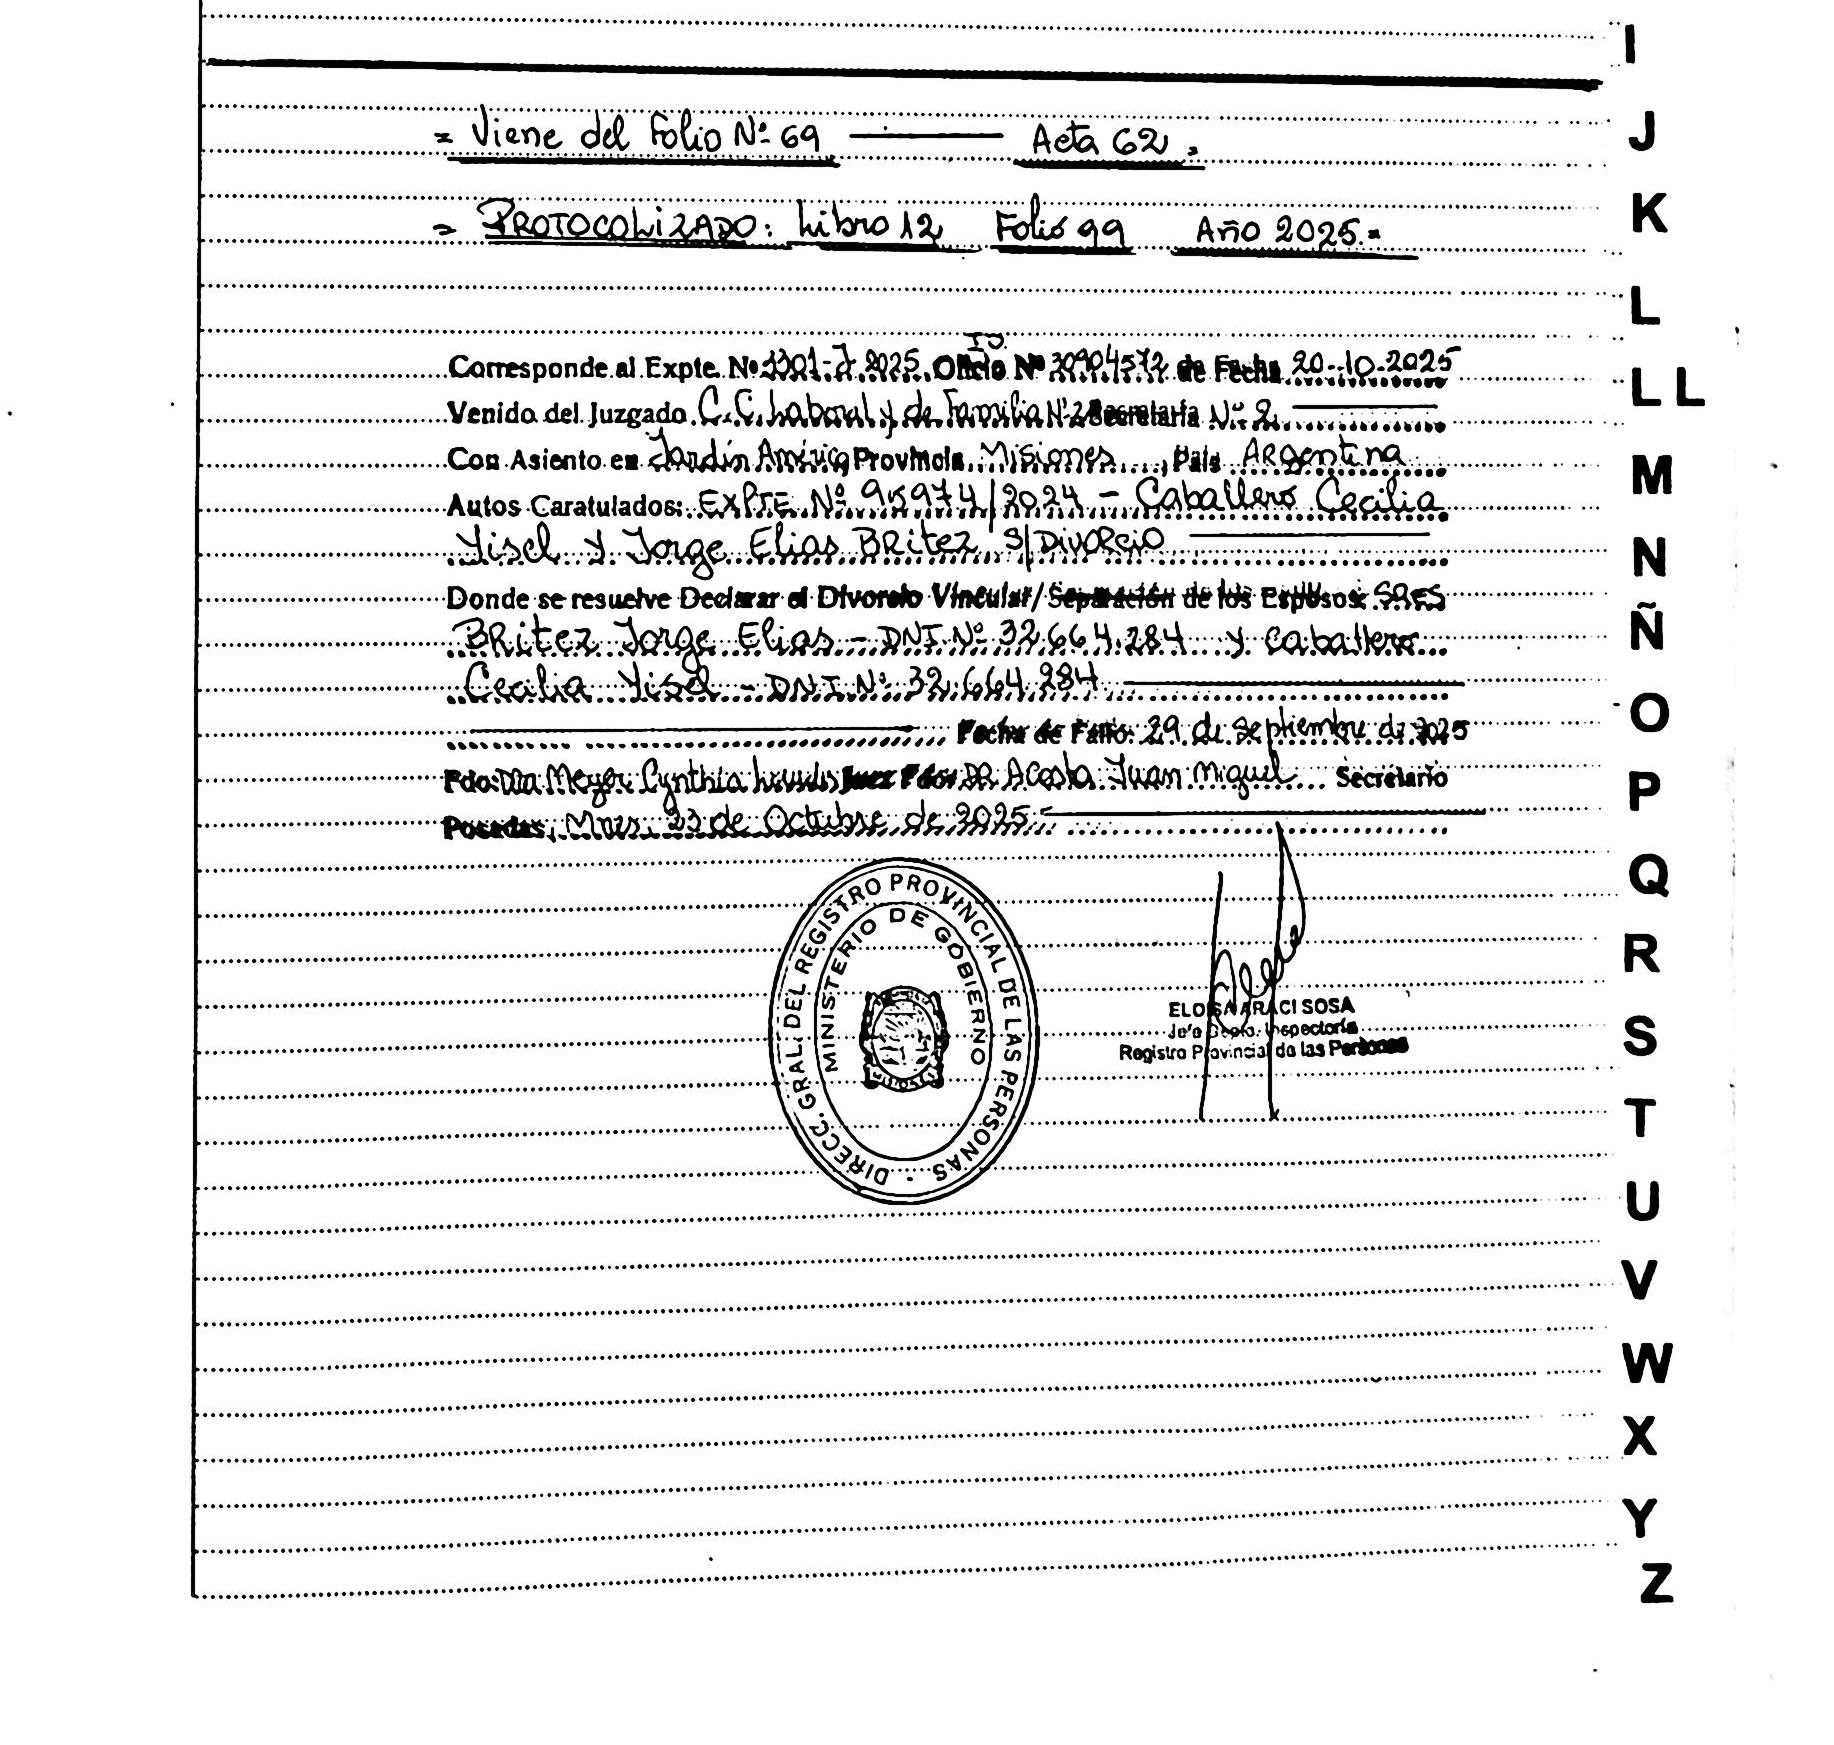 I
= Viene del Folio Nº 69 ——— Acta 62 =
J
= PROTOCOLIZADO: Libro 12 Folio 99 Año 2025.=
K
L
ID
Corresponde al Expte. Nº 1301-J-2025. Oficio Nº 30904572 de Fecha 20-10-2025
LL
Venido del Juzgado C.C. Laboral y de Familia Nº 2 Secretaría Nº 2
Con Asiento en Jardín América, Provincia Misiones, País Argentina
M
Autos Caratulados: EXPTE Nº 95974/2024 - Caballero Cecilia
Yisel y Jorge Elias Britez S/Divorcio
N
Donde se resuelve Declarar el Divorcio Vincular/Separación de los Esposos: SRES
Ñ
Britez Jorge Elias - DNI Nº 32.664.284 y Caballero
Cecilia Yisel - DNI Nº 32.664.284
O
Fecha de Fallo: 29 de Septiembre de 2025
Fdo: Dra Meyer Cynthia Juez Fdo: DR Acosta Juan Miguel Secretario
P
Posadas, Mnes, 23 de Octubre de 2025
Q
DIRECC. GRAL. DEL REGISTRO PROVINCIAL DE LAS PERSONAS -
MINISTERIO DE GOBIERNO
MISIONES
R
ELOISA ARACI SOSA
Jefe Depto. Inspectoría
Registro Provincial de las Personas
S
T
U
V
W
X
Y
Z